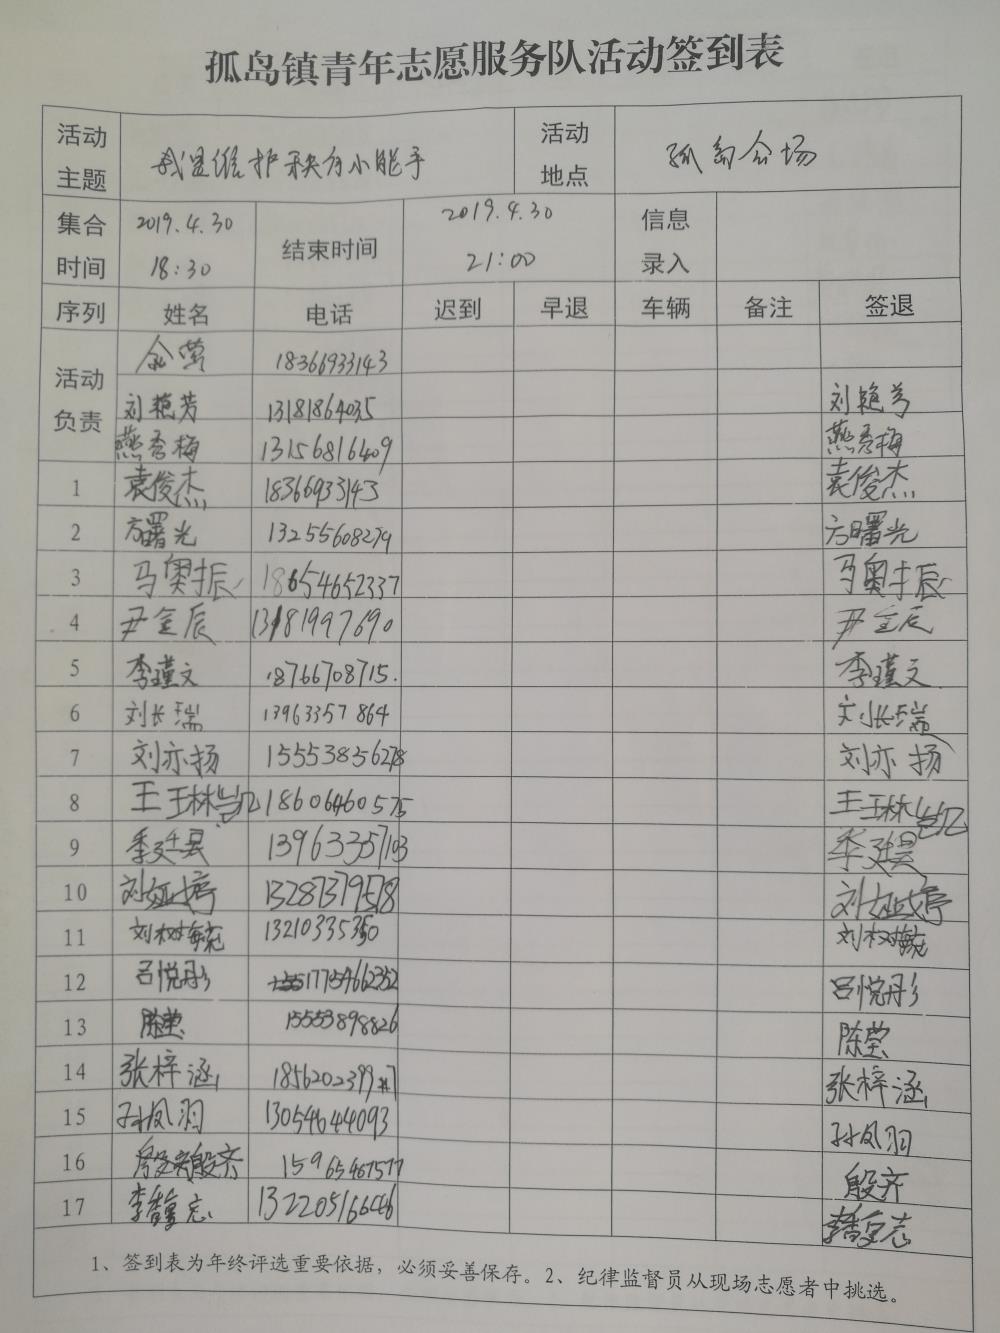 孤岛镇青年志愿服务队活动签到表
活动主题 我是维护秩序小能手 活动地点 孤岛会场
集合时间 2019.4.30 18:30 结束时间 2019.4.30 21:00 信息录入
序列 姓名 电话 迟到 早退 车辆 备注 签退
活动负责 18366933143
刘艳芳 13181864035 刘艳芳
燕秀梅 13156816409 燕秀梅
1 袁俊杰 18366933143 袁俊杰
2 方曙光 13255608279 方曙光
3 马奥振 18654652337 马奥振
4 尹金辰 13181997690 尹金辰
5 李瑾文 18766708715. 李瑾文
6 刘长瑞 13963357864 刘长瑞
7 刘亦扬 15553856278 刘亦扬
8 王玉林凯 18606460575 王玉林凯
9 季廷昊 13963357103 季廷昊
10 刘娅婷 13287379578 刘娅婷
11 刘树毓 13210335350 刘树毓
12 吕悦彤 17754662352 吕悦彤
13 陈莹 15553898826 陈莹
14 张梓涵 18562023997 张梓涵
15 孙凤羽 13054644093 孙凤羽
16 殷齐 15965467577 殷齐
17 李馨志 13220516646 李馨志
1、签到表为年终评选重要依据，必须妥善保存。2、纪律监督员从现场志愿者中挑选。